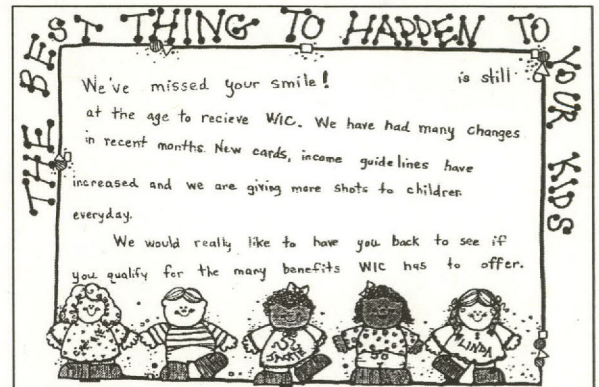 THE BEST THING TO HAPPEN TO YOUR KIDS
We've missed your smile! is still
at the age to recieve WIC. We have had many changes
in recent months. New cards, income guidelines have
increased and we are giving more shots to children
everyday.
We would really like to have you back to see if
you qualify for the many benefits WIC has to offer.
JACKIE
LINDA